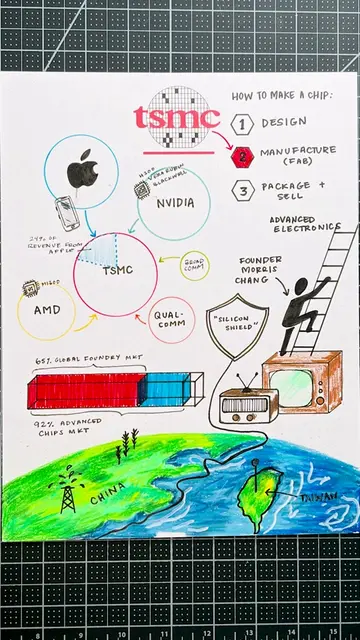 tsmc
HOW TO MAKE A CHIP:
1 DESIGN
2 MANUFACTURE
(FAB)
3 PACKAGE +
SELL
H300
VERA RUBIN
BLACKWELL
NVIDIA
24% OF
REVENUE FROM
APPLE
TSMC
BROAD
COMM
AMD
QUAL-
COMM
ADVANCED
ELECTRONICS
FOUNDER
MORRIS
CHANG
"SILICON
SHIELD"
65% GLOBAL FOUNDRY MKT
92% ADVANCED
CHIPS MKT
CHINA
TAIWAN
9 10 11 12 13 14 15